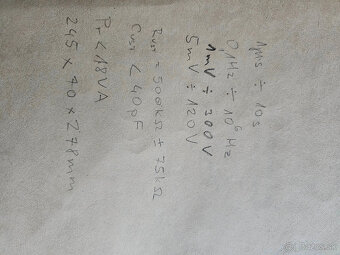 1µs ÷ 10s
0,1Hz ÷ 10⁶ Hz
1mV ÷ 300V
5mV ÷ 120V
Rvst = 500kΩ ± 75kΩ
Cvst < 40pF
Pr < 18VA
245 x 70 x 278mm